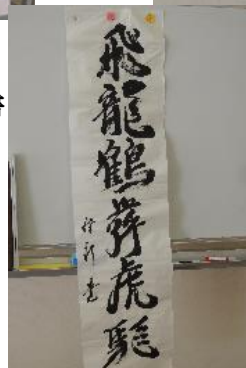 飛龍鶴舞虎馳